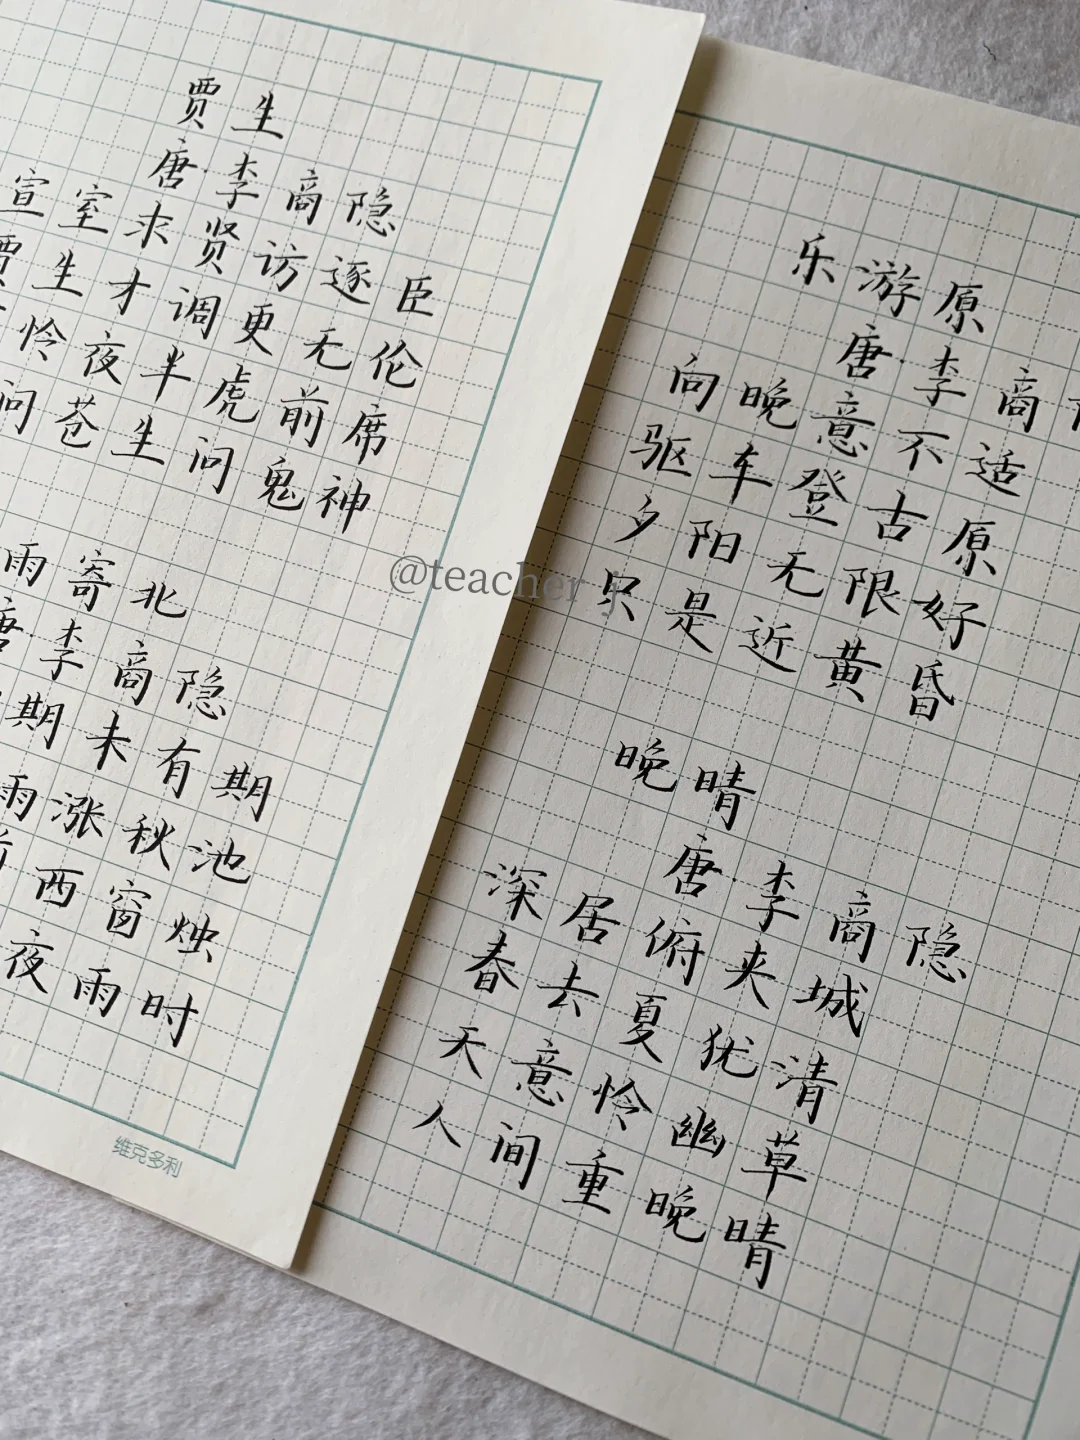 贾生
唐·李商隐
宣室求贤访逐臣
贾生才调更无伦
怜夜半虎前席
问苍生问鬼神
雨寄北
唐李商隐
期未有期
雨涨秋池
西窗烛
夜雨时
维克多利
@teacher
乐游原
唐·李商
向晚意不适
驱车登古原
夕阳无限好
只是近黄昏
晚晴
唐·李商隐
深居俯夹城
春去夏犹清
天意怜幽草
人间重晚晴